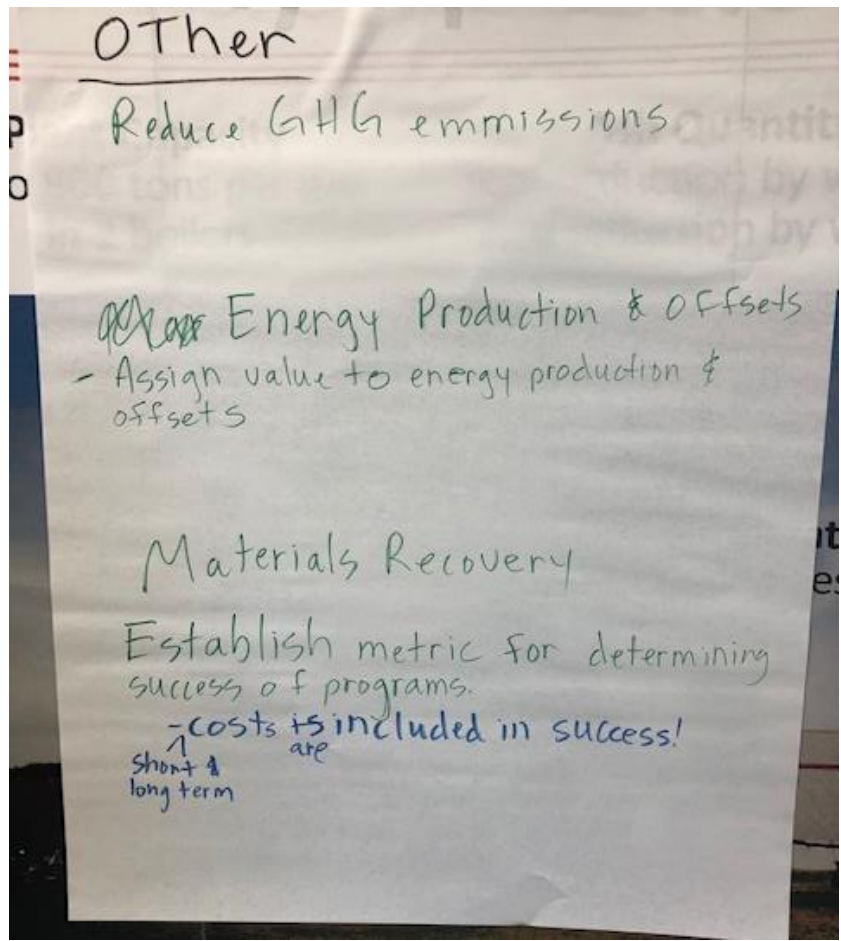 OTher
Reduce GHG emmissions
Energy Production & offsets
- Assign value to energy production &
offsets
Materials Recovery
Establish metric for determining
success of programs.
- costs is included in success!
are
short &
long term